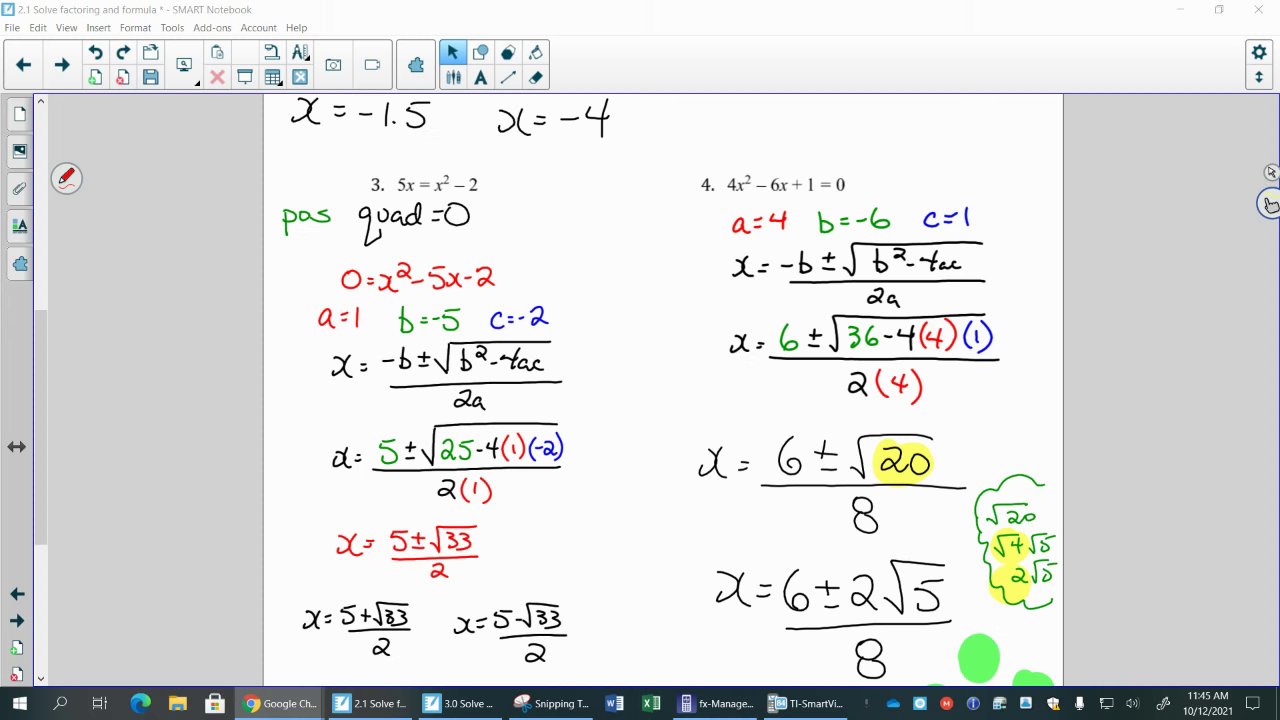 2.1 Solve factoring and formula * - SMART Notebook
File Edit View Insert Format Tools Add-ons Account Help
x = -1.5 x = -4
3. 5x = x² - 2
pas quad = 0
0 = x² - 5x - 2
a = 1 b = -5 c = -2
x = -b ± √b² - 4ac
2a
x = 5 ± √25 - 4(1)(-2)
2(1)
x = 5 ± √33
2
x = 5 + √33 x = 5 - √33
2 2
4. 4x² - 6x + 1 = 0
a = 4 b = -6 c = 1
x = -b ± √b² - 4ac
2a
x = 6 ± √36 - 4(4)(1)
2(4)
x = 6 ± √20
8
√20
√4 √5
2√5
x = 6 ± 2√5
8
Google Ch...
2.1 Solve f...
3.0 Solve ...
Snipping T...
fx-Manage...
TI-SmartVi...
11:45 AM
10/12/2021